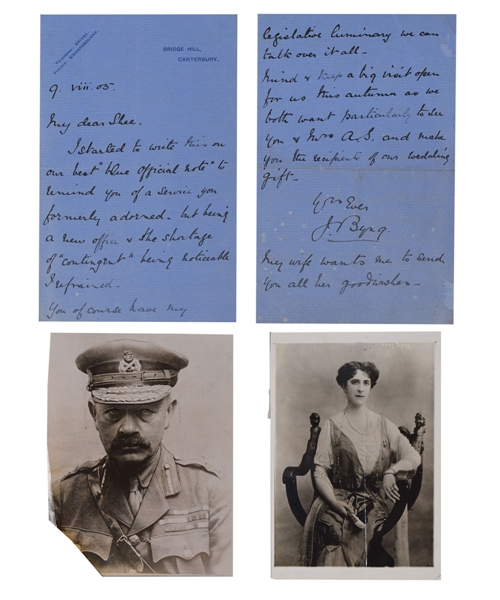 BRIDGE HILL,
CANTERBURY.
9. viii. 05.
My dear Shee.
I started to write this on
our best "blue official note" to
remind you of a service you
formerly adorned. but being
a new office & the shortage
of "contingent" being noticeable
I refrained.
You of course have my
legislative luminary we can
talk over it all -
Mind & keep a big visit open
for us this autumn as we
both want particularly to see
you & Mrs A.S. and make
you the recipients of our wedding
gift -
Yrs Ever
J. Byng
My wife wants me to send
you all her goodwishes.